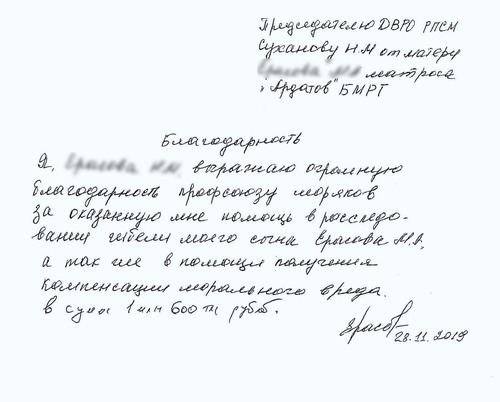 Председателю ДВРО РПСМ
Суханову Н.М от матери
матроса
"Ардатов" БМРТ
Благодарность
Я, выражаю огромную
благодарность профсоюзу моряков
за оказанную мне помощь в расследо-
вании гибели моего сына Ерасова М.А.
а так же в помощи получения
компенсации морального вреда.
в сумм 1 млн 600 т рублб.
28.11.2019